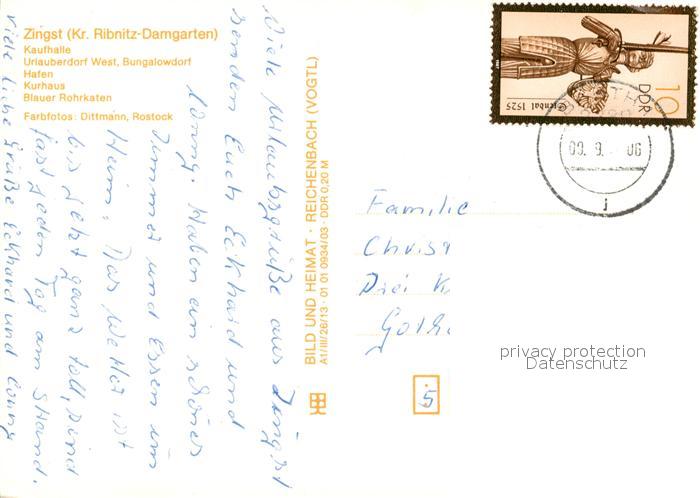 Zingst (Kr. Ribnitz-Damgarten)
Kaufhalle
Urlauberdorf West, Bungalowdorf
Hafen
Kurhaus
Blauer Rohrkaten
Farbfotos: Dittmann, Rostock
Viele Urlaubsgrüße aus Zingst
senden Euch Eckhard und
Conny. Haben ein schönes
Zimmer und Essen im
Heim. Das Wetter ist
bis jetzt ganz toll, sind
fast jeden Tag am Strand.
Viele liebe Grüße Eckhard und Conny
BILD UND HEIMAT · REICHENBACH (VOGTL)
A1/III/26/13 · 01 01 0934/03 · DDR 0,20 M
10
DDR
Stendal 1525
09. 9. 06
j
Familie
Christ
Drei K
Goth
5
privacy protection
Datenschutz